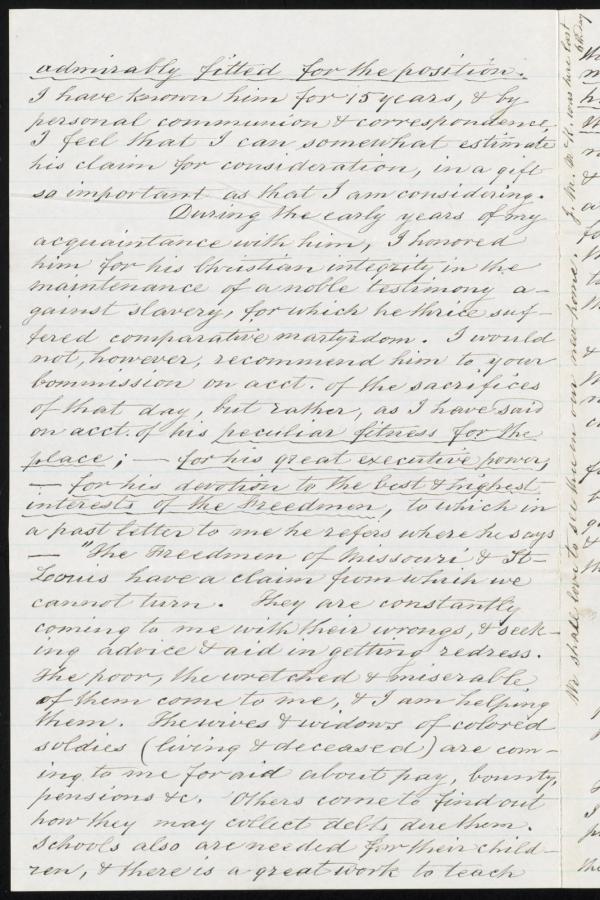 admirably fitted for the position.
I have known him for 15 years, & by
personal communion & correspondence,
I feel that I can somewhat estimate
his claim for consideration, in a gift
so important as that I am considering.
During the early years of my
acquaintance with him, I honored
him for his Christian integrity in the
maintenance of a noble testimony a-
gainst slavery, for which he thrice suf-
fered comparative martyrdom. I would
not, however, recommend him to your
Commission on acct. of the sacrifices
of that day, but rather, as I have said
on acct. of his peculiar fitness for the
place; — for his great executive power,
— for his devotion to the best & highest
interests of the Freedmen, to which in
a past letter to me he refers where he says
— "The Freedmen of Missouri & St-
Louis have a claim from which we
cannot turn. They are constantly
coming to me with their wrongs, & seek-
ing advice & aid in getting redress.
The poor, the wretched & miserable
of them come to me, & I am helping
them. The wives & widows of colored
soldies (living & deceased) are com-
ing to me for aid about pay, bounty,
pensions &c. Others come to find out
how they may collect debts due them.
Schools also are needed for their child-
ren, & there is a great work to teach
We shall love to see thee in our new home. J. M. McK. was here last
6th day